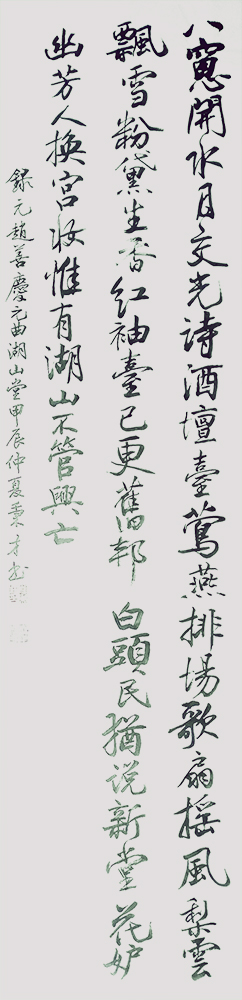 八窗開水月交光詩酒壇臺鶯燕排場歌扇摇風梨雲
飄雪粉黛生香紅袖臺已更舊邦白頭民猶说新堂花妒
幽芳人換宮妝惟有湖山不管興亡
錄元趙善慶元曲湖山堂甲辰仲夏秉才书